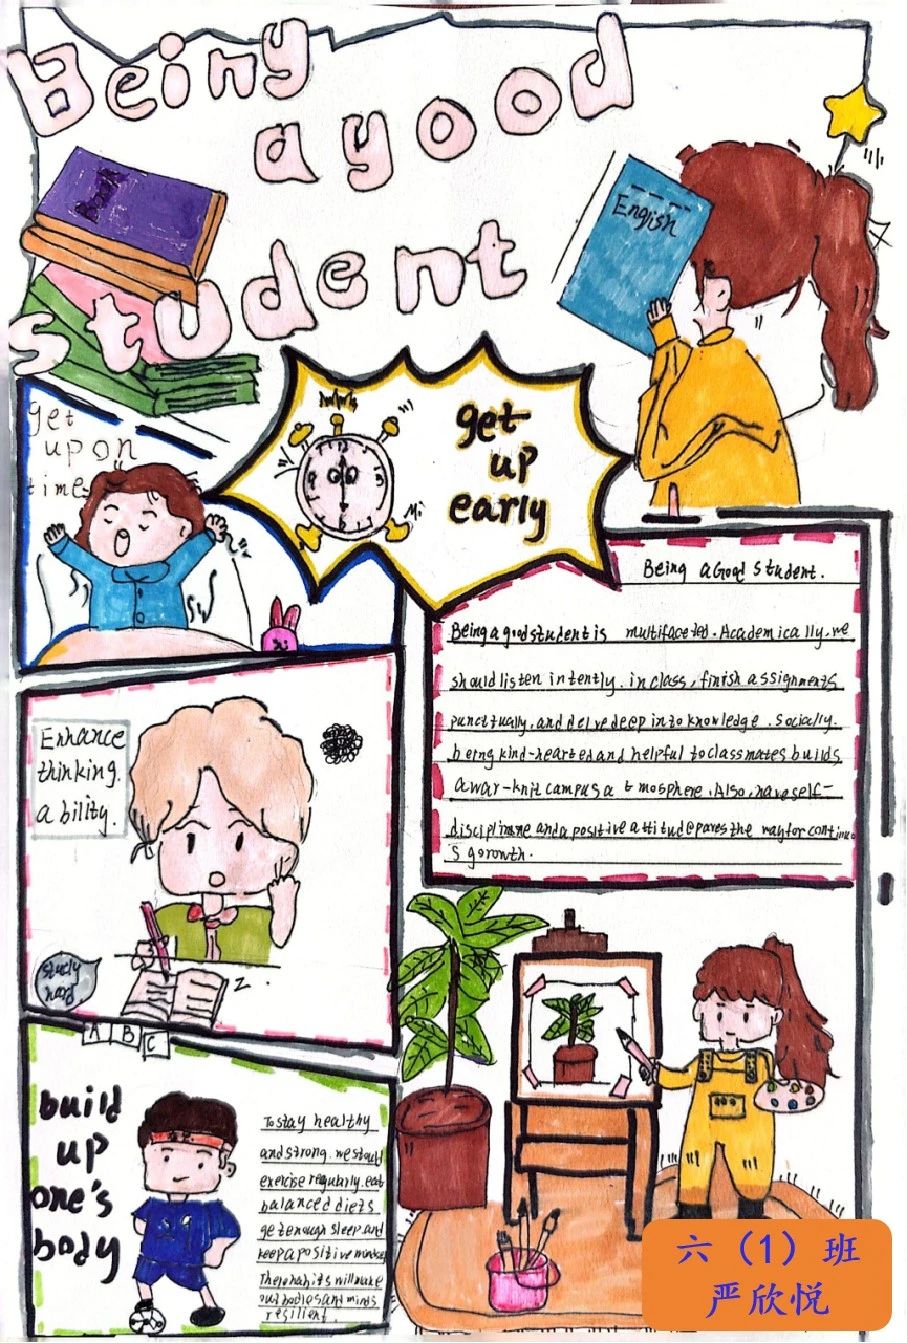 Being
a good
student
Book
Engish
get
up on
times
get
up
early
Being a Good student.
Being a good student is multifaceted. Academically, we
should listen intently. in class, finish assignments
punctually, and delve deep into knowledge. Socially.
being kind-hearted and helpful to classmates builds
a war-knit campus a tmosphere. Also, have self-
disciplinne and a positive attitude paves the way for continuo
s gorowth.
Enhance
thinking.
a bility.
study
hard.
A B C
build
up
one's
body
To stay healthy
and strong. we should
exercise regularly. eat
balanced diets
get enough sleep and
keep a positive mindse
These habits will make
our bodies and minds
resilient.
六（1）班
严欣悦